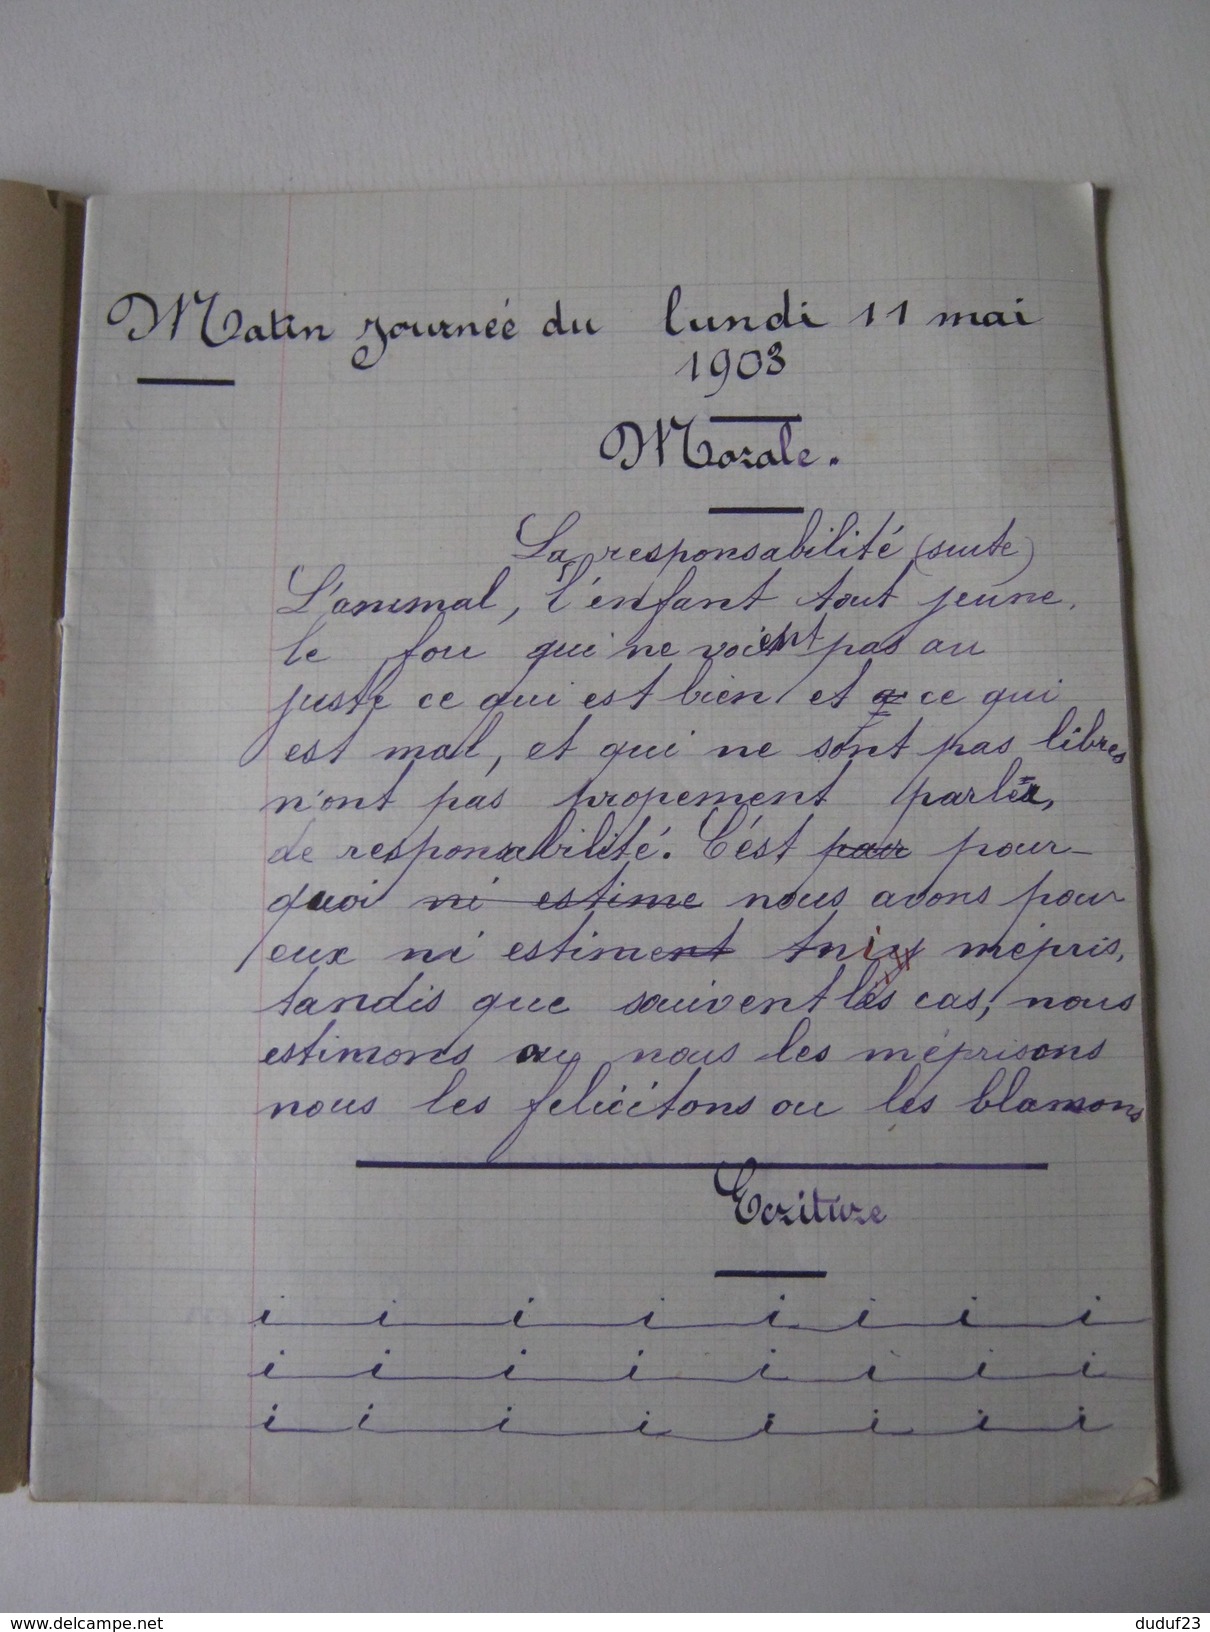 Matin journée du lundi 11 mai
1903
Morale.
La responsabilité (suite)
L'animal, l'enfant tout jeune,
le fou qui ne voient pas au
juste ce qui est bien et ce qui
est mal, et qui ne sont pas libres
n'ont pas propement parler,
de responsabilité. C'ést pour pour-
quoi ni estime nous avons pour
eux ni estiment mépris,
tandis que suivent les cas, nous
estimons ou nous les méprisons
nous les felicitons ou les blamons
Ecriture
i i i i i i i i
i i i i i i i i
i i i i i i i i
delcampe.net
duduf23